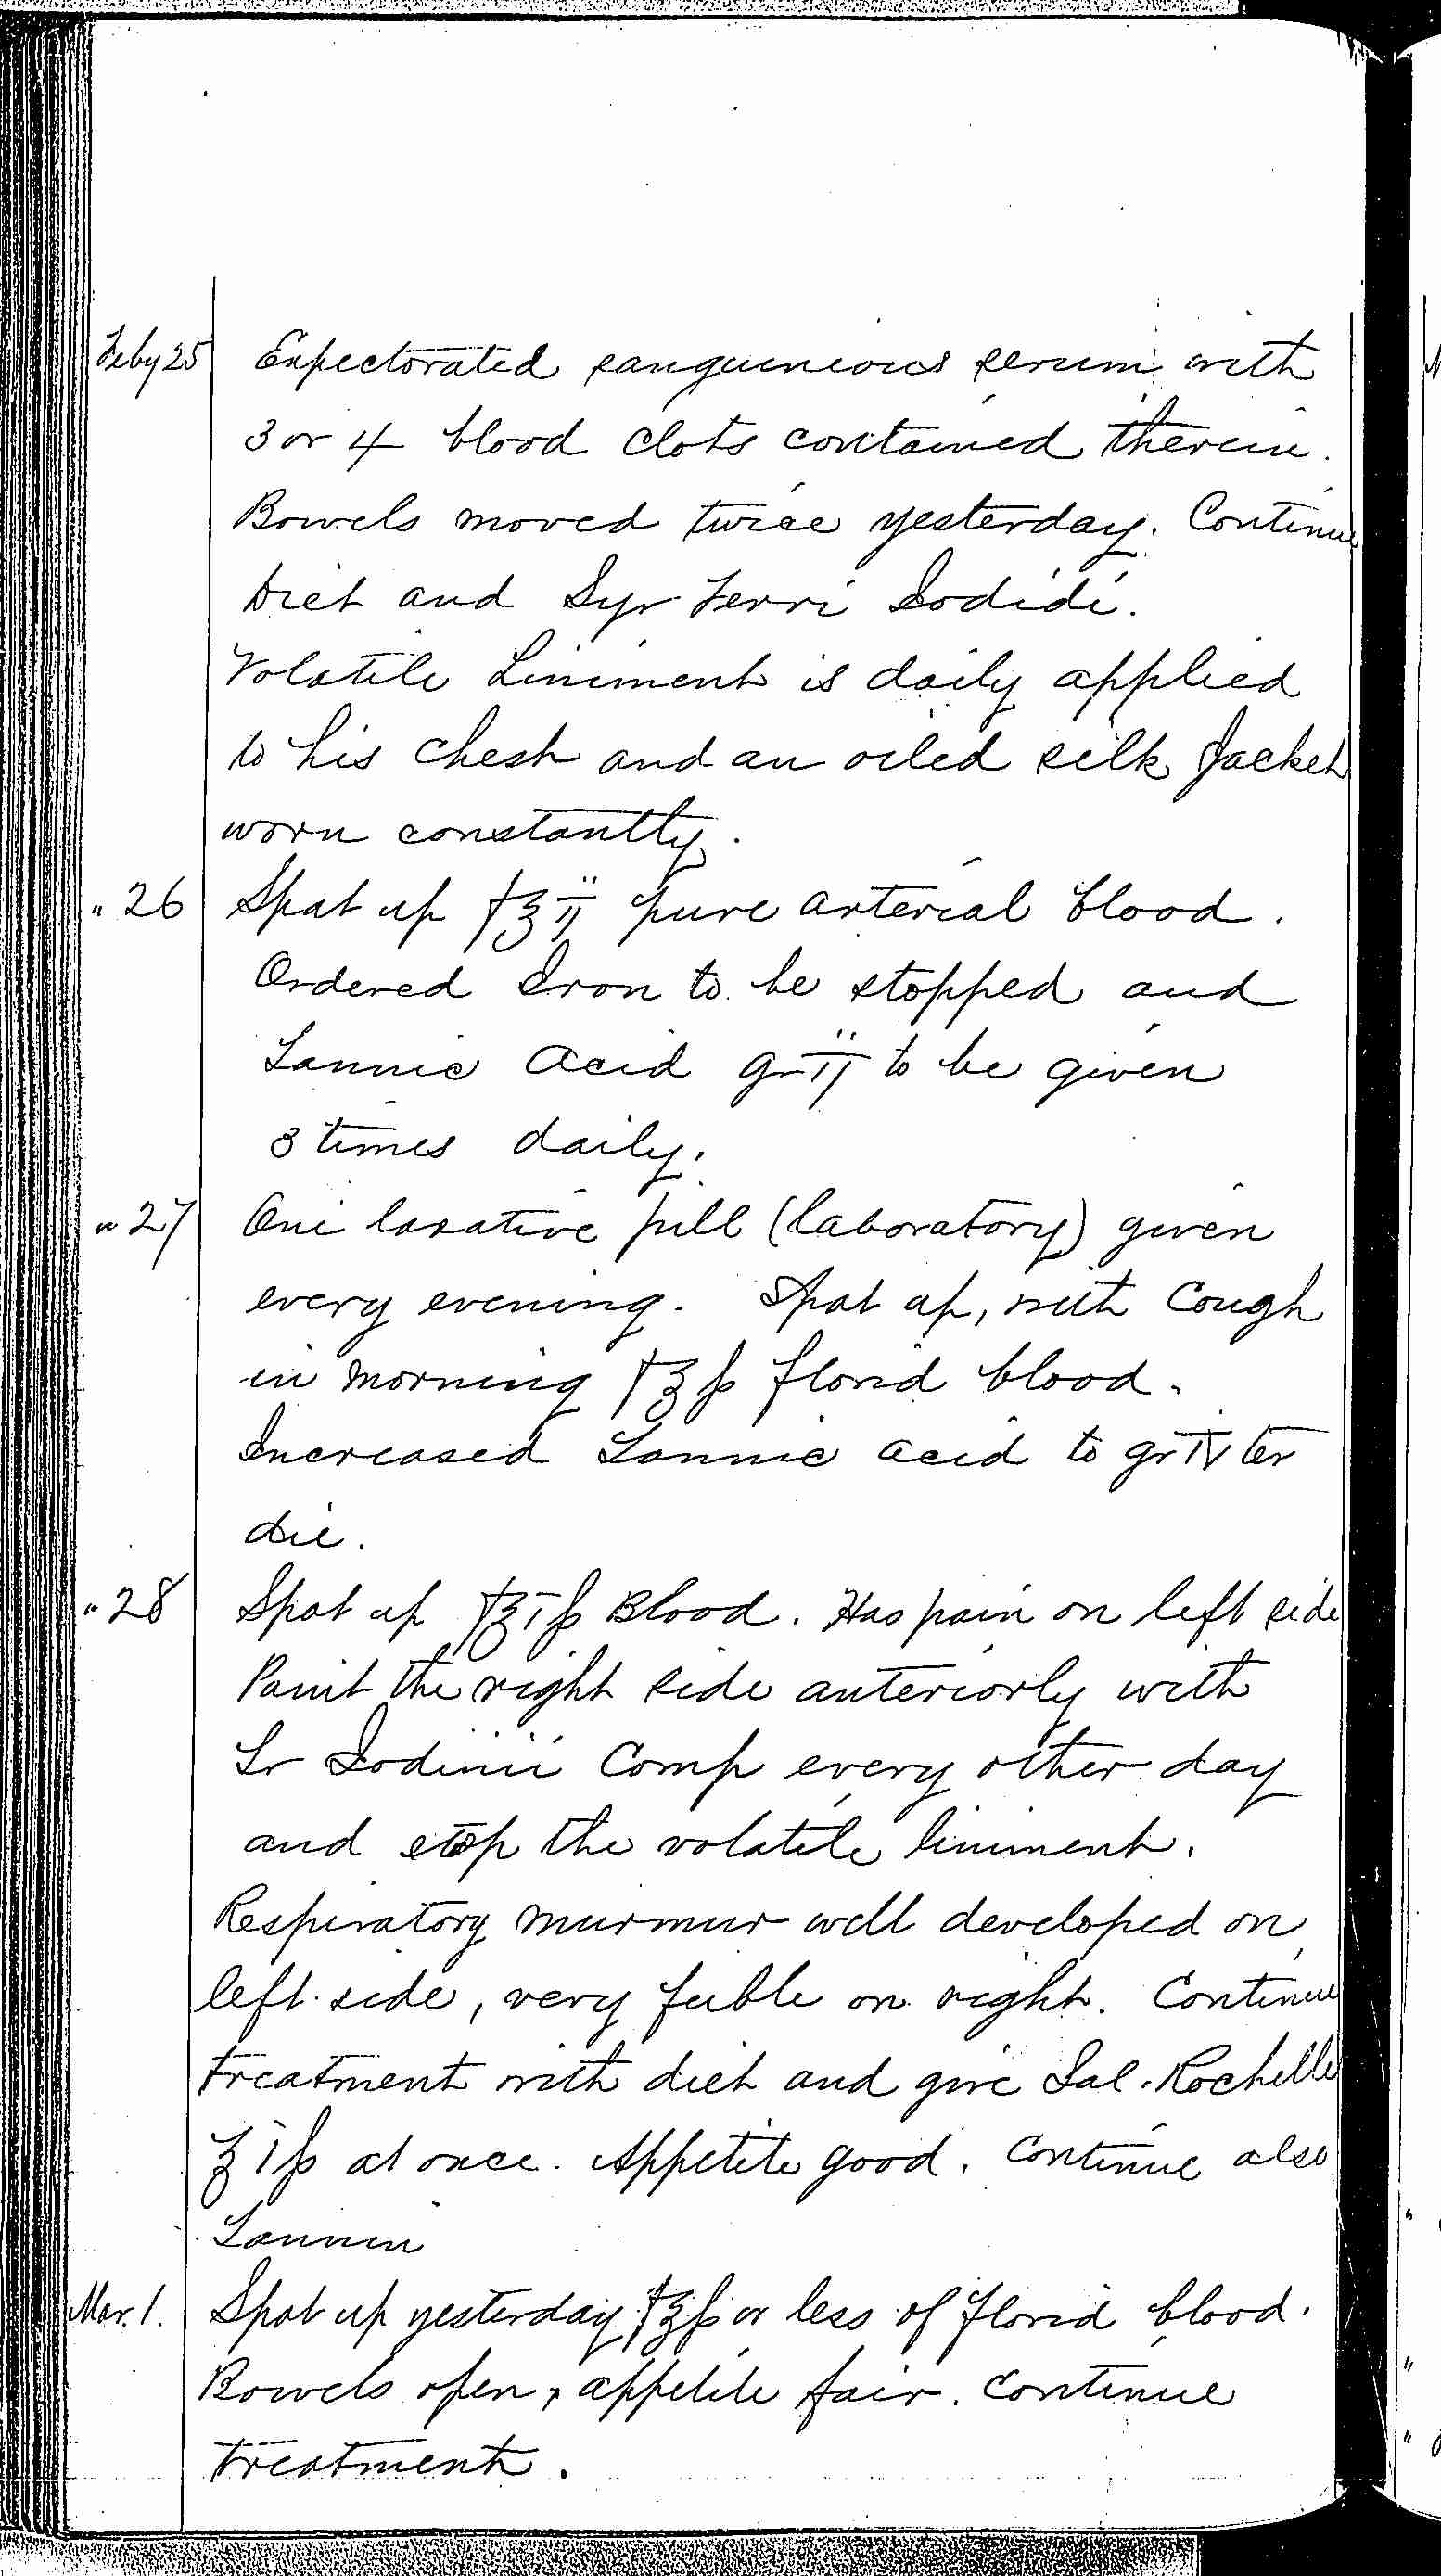 Feby 25 Expectorated sanguineious serum with
3 or 4 blood clots contained therein.
Bowels moved twice yesterday. Continue
Diet and Syr Ferri Iodidi.
Volatile Liniment is daily applied
to his chest and an oiled silk Jacket
worn constantly.
" 26 Spat up f℥ ii pure arterial blood.
Ordered Iron to be stopped and
Tannic Acid gr ii to be given
3 times daily.
" 27 One laxative pill (laboratory) given
every evening. Spat up, with Cough
in morning f℥ ß florid blood.
Increased Tannic acid to gr iv ter
die.
" 28 Spat up f℥ i ß Blood. Has pain on left side
Paint the right side anteriorly with
Tr Iodinii Comp every other day
and stop the volatile liniment.
Respiratory murmur well developed on
left side, very feeble on right. Continue
treatment with diet and give Sal. Rochelle
℥ i ß at once. Appetite good. Continue also
Tannin
Mar. 1. Spat up yesterday f℥ ß or less of florid blood.
Bowels open, appetite fair. Continue
treatment.